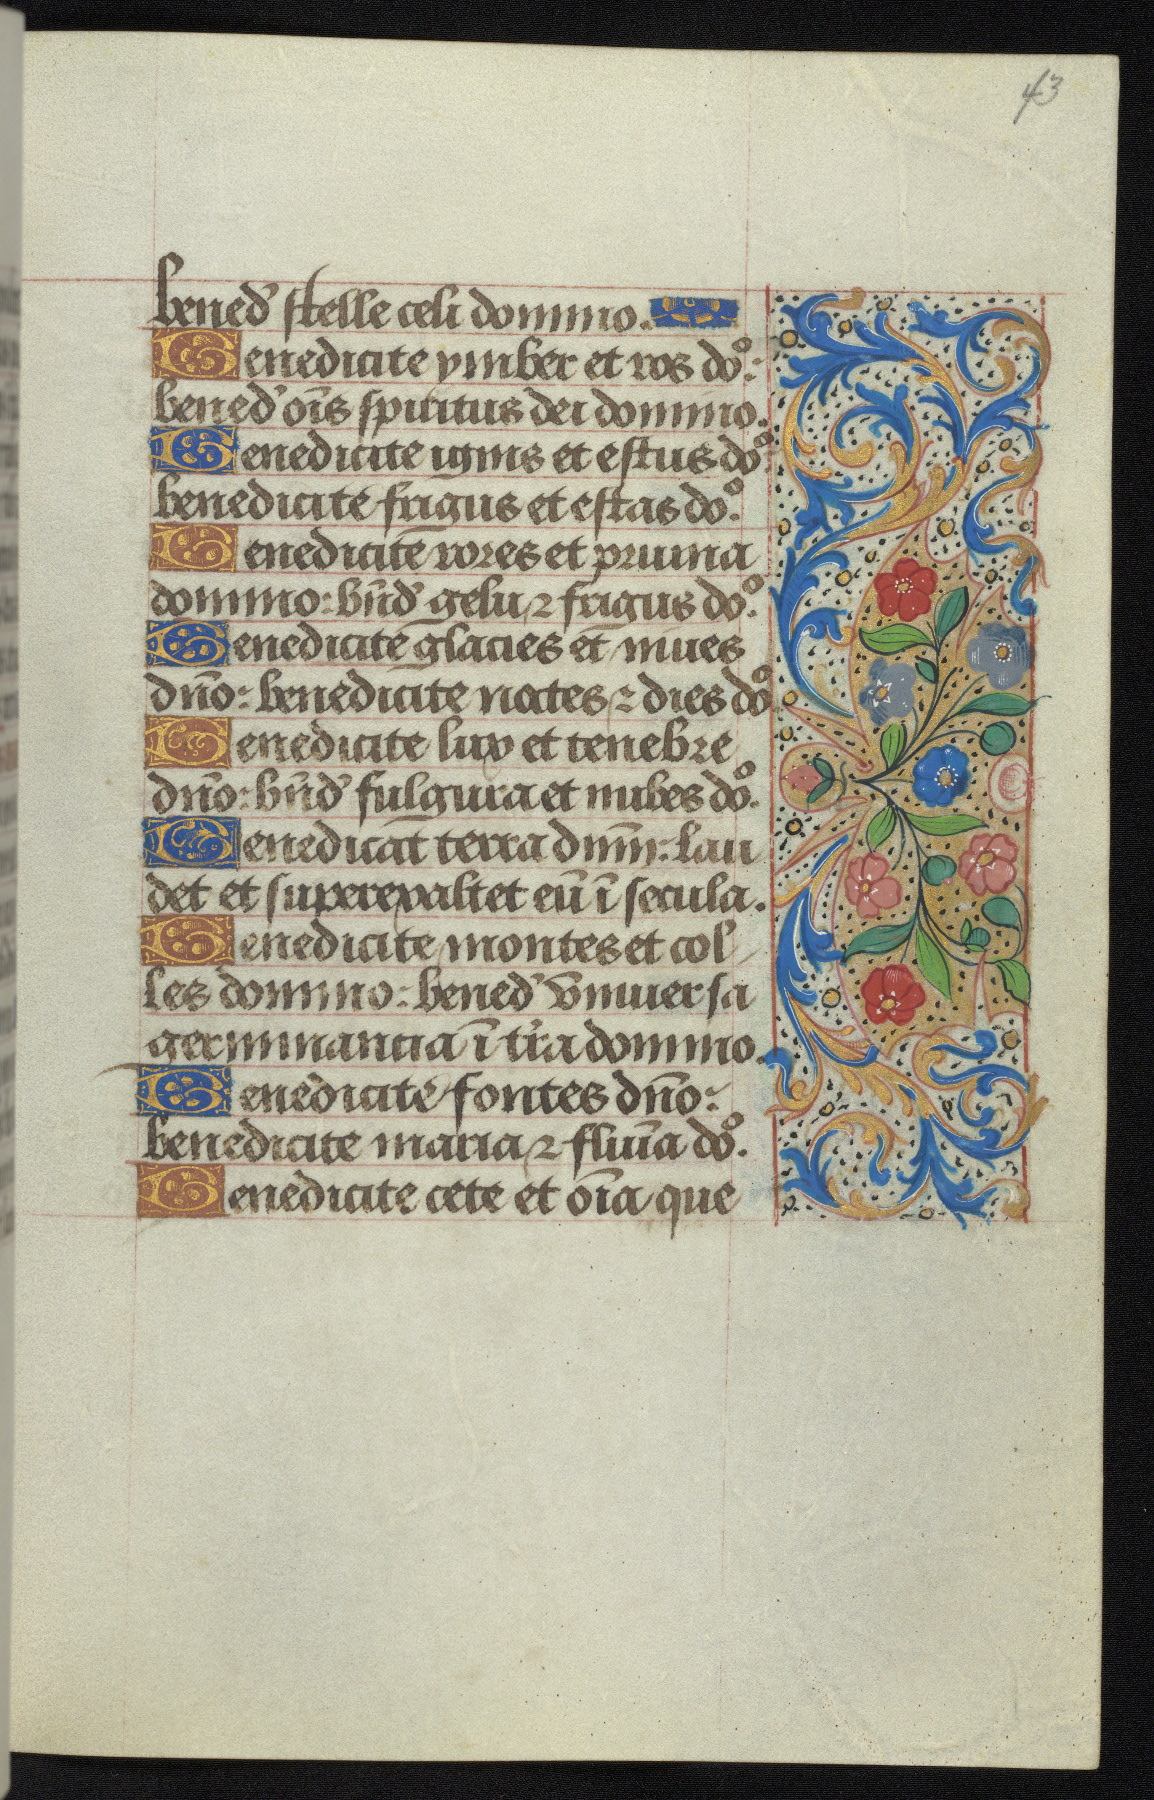 43
bened̉ stelle celi domino.
Benedicite ymber et ros do᷒:
bened̉ oi᷒s spiritus dei domino.
Benedicite ignis et estus do᷒
benedicite frigus et estas do᷒.
Benedicite rores et pruina
domino: bn̄d̉ gelu ⁊ frigus do᷒.
Benedicite glacies et niues
dn̄o: benedicite noctes ⁊ dies do᷒
Benedicite lux et tenebre
dn̄o: bn̄d̉ fulgura et nubes do᷒.
Benedicāt terra dn̄m: lau
det et superexaltet eū ī secula.
Benedicite montes et col
les domino: bened̉ vniuersa
germinancia ī tr̄a domino.
Benedicite fontes dn̄o:
benedicite maria ⁊ fluīa do᷒.
Benedicite cete et oīa que